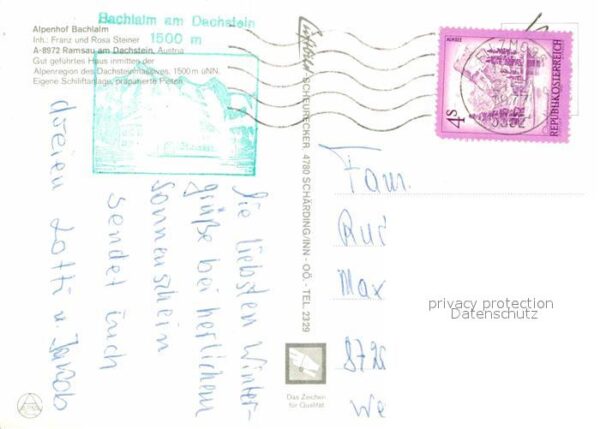 Bachlalm am Dachstein
1500 m
Alpenhof Bachlalm
Inh.: Franz und Rosa Steiner
A-8972 Ramsau am Dachstein, Austria
Gut geführtes Haus inmitten der
Alpenregion des Dachsteinmassives, 1500m üNN.
Eigene Schliftanlage, präparierte Pisten.
die liebsten Winter-
grüße bei herlichem
Sonnenschein
sendet Euch
Lotti u. Jakob
SCHEURECKER 4780 SCHÄRDING/INN - OÖ. - TEL. 2329
Das Zeichen
für Qualität
4s
REPUBLIK ÖSTERREICH
Fam.
Max
We
privacy protection
Datenschutz